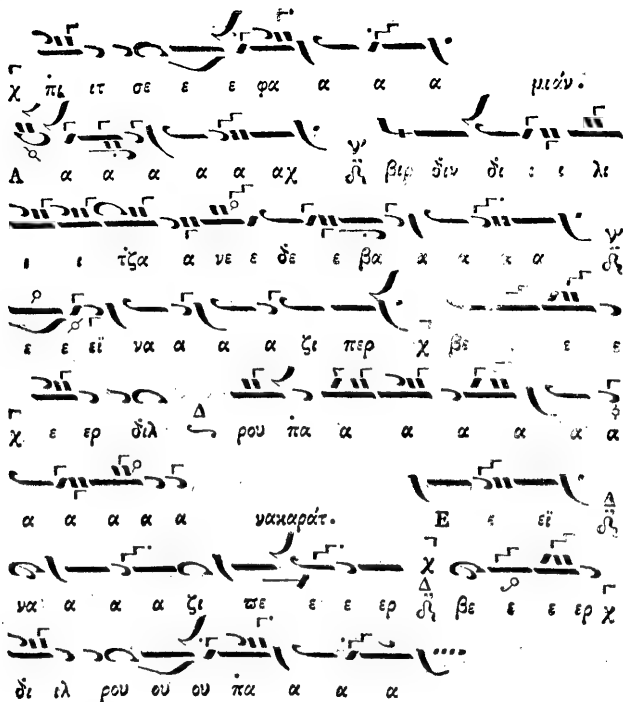 χ π̇ι ιτ σε ε ε φα α α α μιάν.
Α α α α α α αχ βιρ δ̇ιν δ̇ι ι ι λι
ι ι τ̇ζα α νε ε δε ε βα α α α α
ε ε εϊ να α α α ζι περ χ βε ε ε
χ ε ερ δ̇ιλ Δ ρου π̇α α α α α α α
α α α α α νακαράτ. Ε ε εϊ Δ
να α α α ζι ϖε ε ε ερ χ Δ βε ε ε ερ χ
δ̇ι ιλ ρου ου ου π̇α α α α